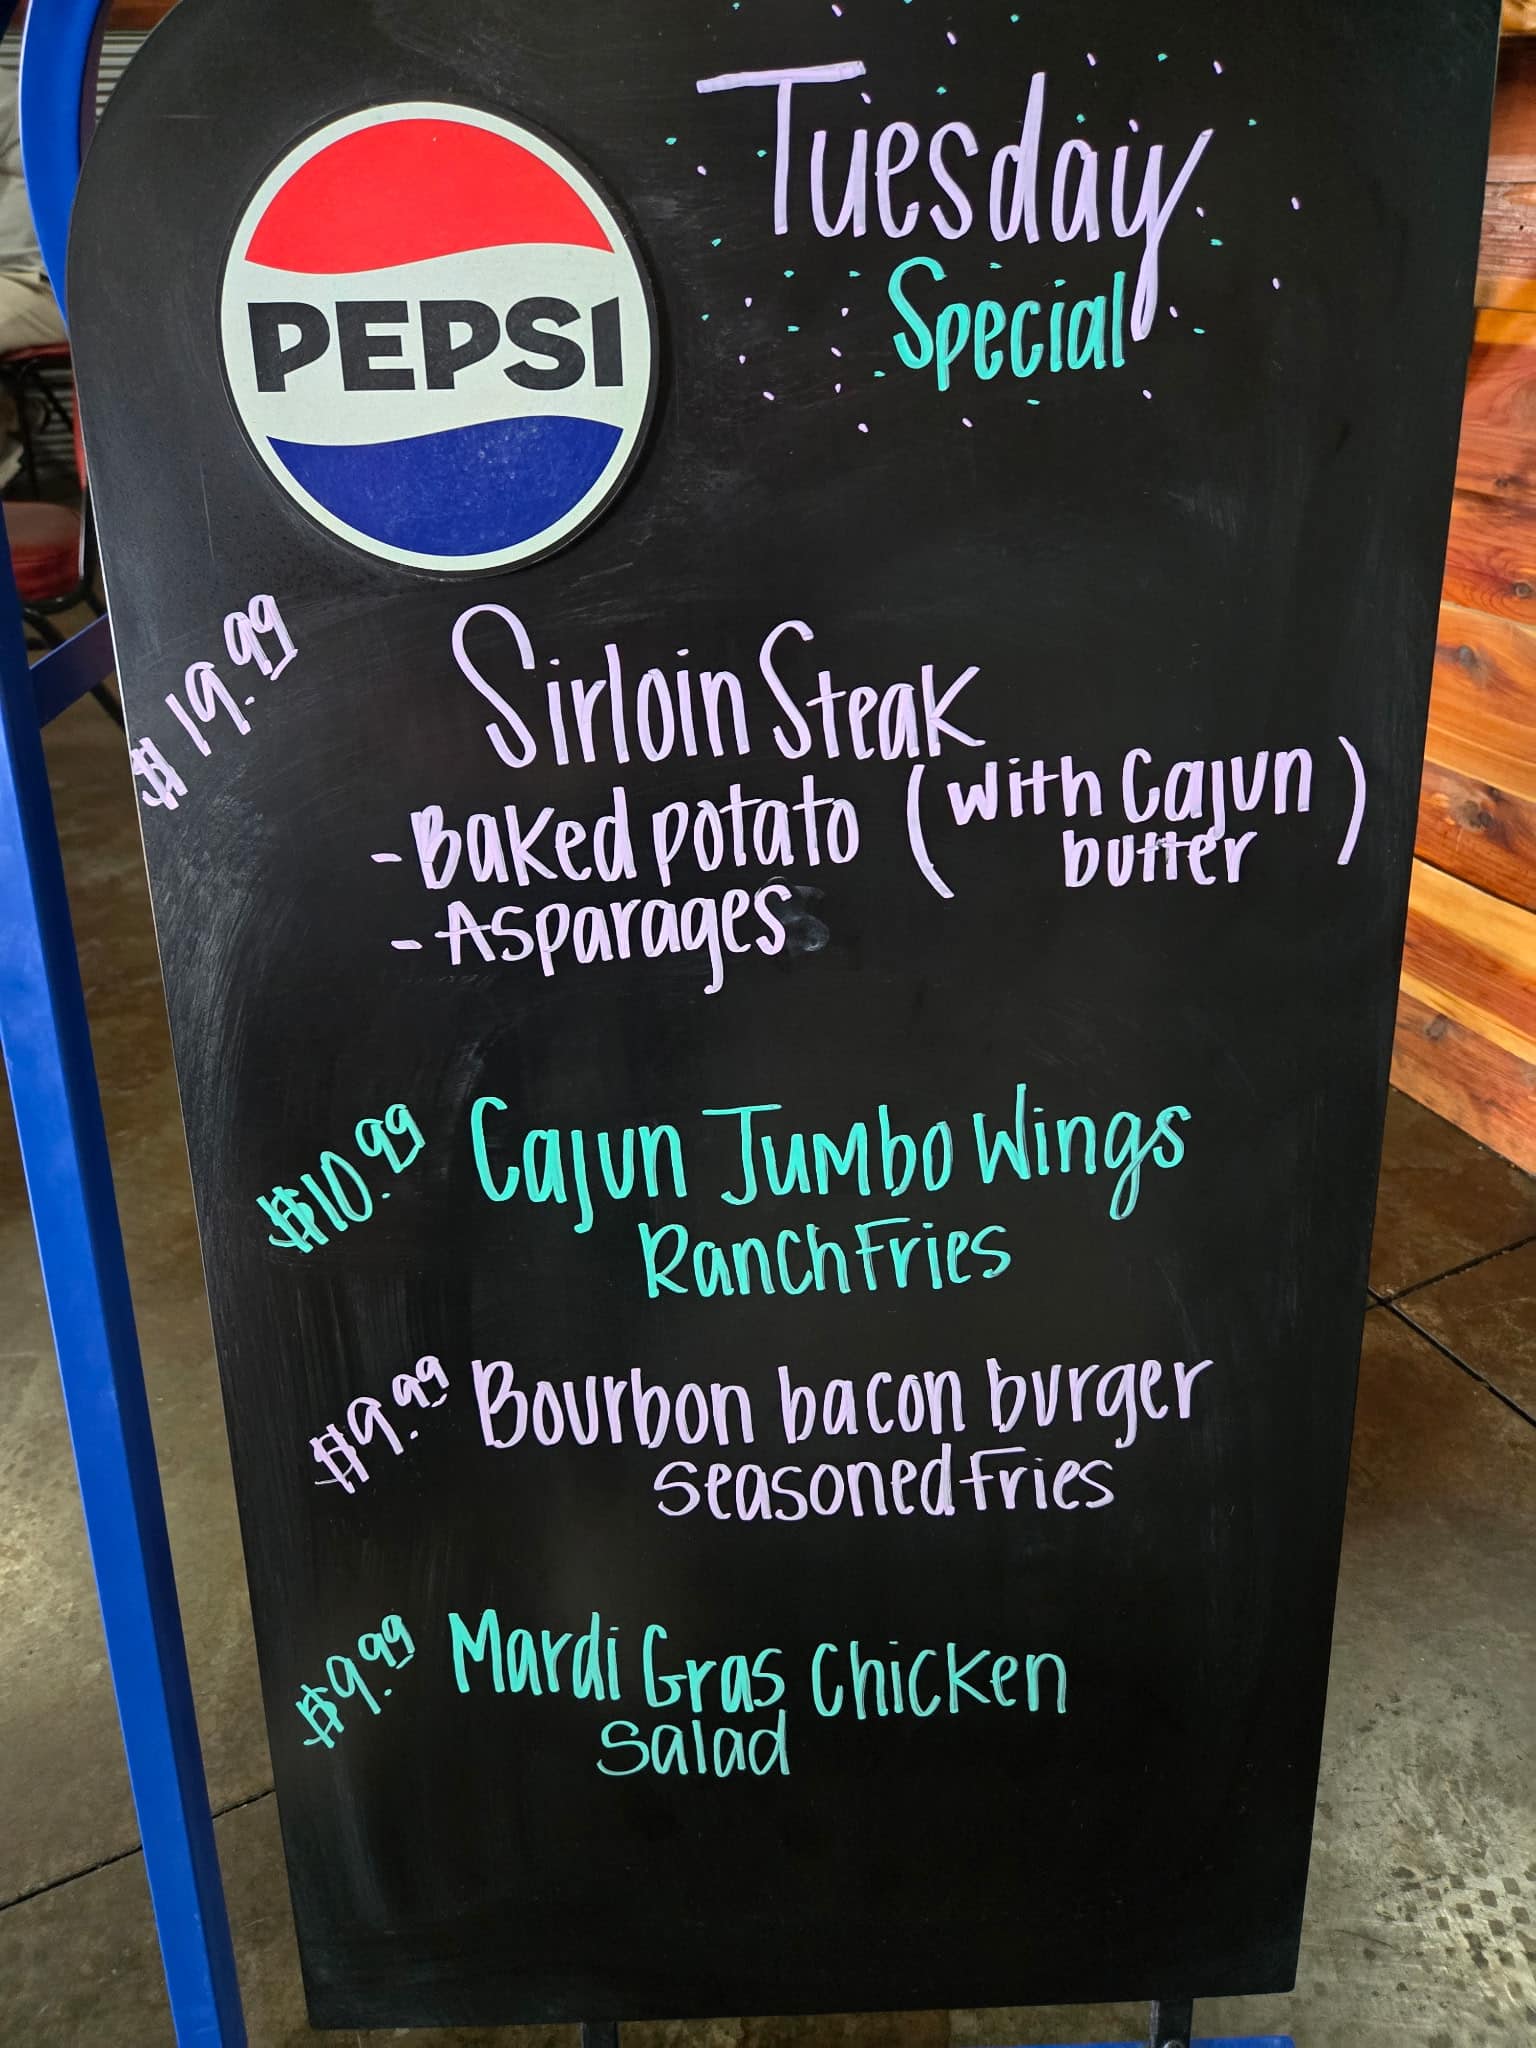 Tuesday
Special
PEPSI
$19.99 Sirloin Steak
- Baked potato (with Cajun
butter)
- Asparages
$10.99 Cajun Jumbo Wings
Ranch Fries
$9.99 Bourbon bacon burger
seasoned Fries
$9.99 Mardi Gras Chicken
Salad